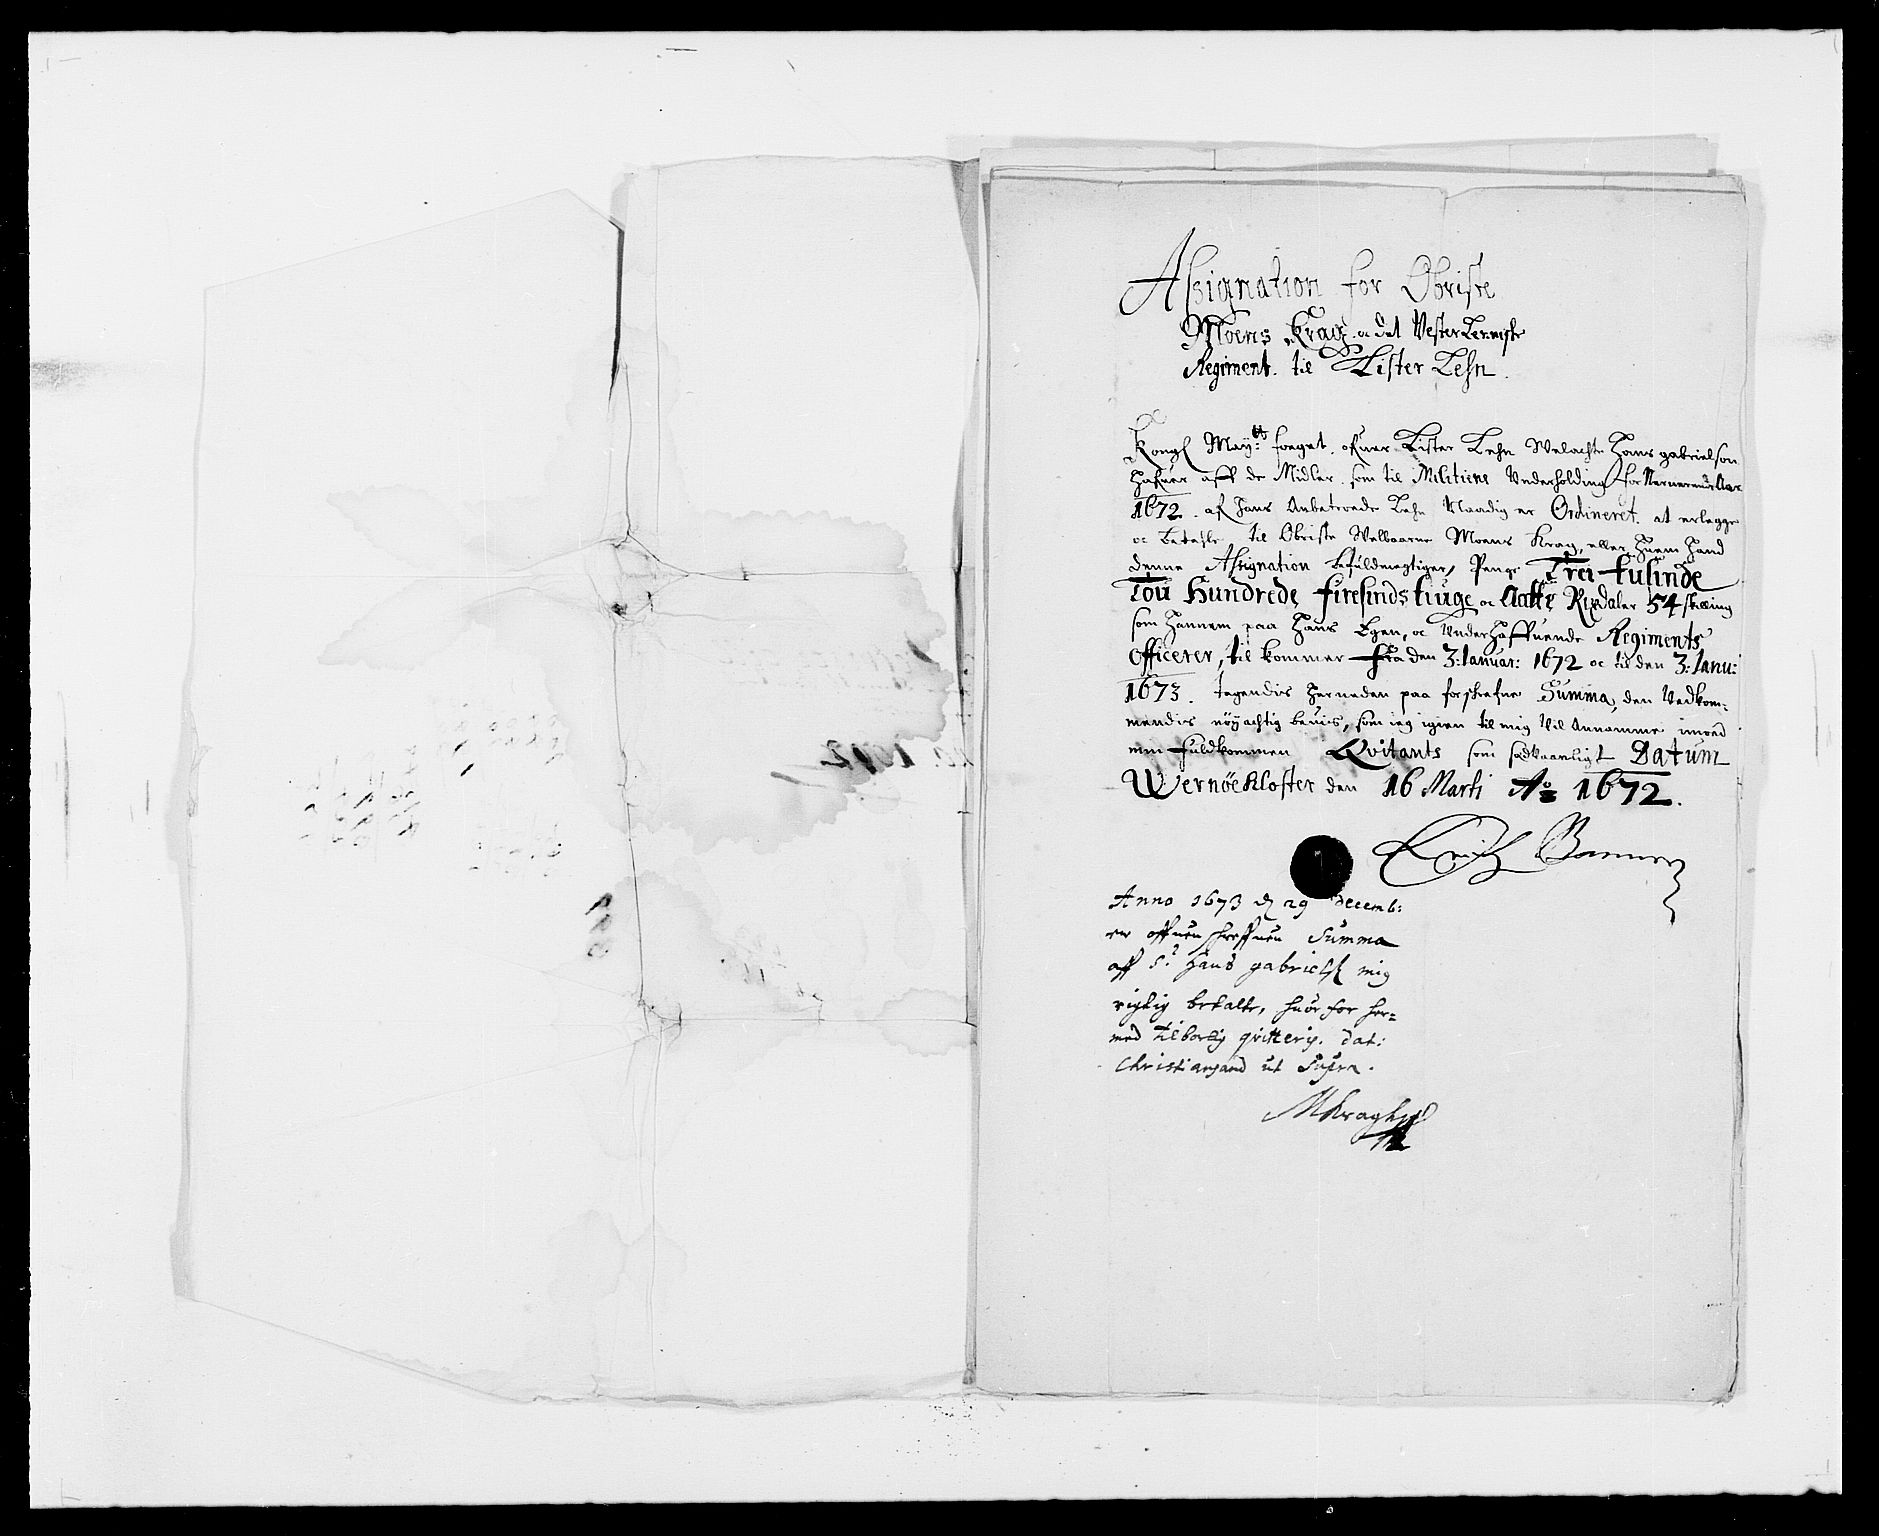 Assignation for Obriste
Moens Krag oc det Vester Lenniske
Regiment til Lister Lehn.
Kongl Mayᵗˢ: foeget ofuer Lister Lehn Welacht Hans gabrielson
Hafuer aff de Midler som til Militiens Underholding for Nerverende Aar
1672. af hans Anbetroede Lehn Naadig er Ordineret at erlegge
oc betahle til Obriste Welbaarne Moens Krag, eller huem hand
denne Assignation befuldmegtiger, Penge Trei tusinde
Tou Hundrede firesinds tiuge oc Aatte Rixdaler 54 skilling
som hannem paa Hans Egen, oc Underhaffuende Regiments
Officerer, til kommer fra den 3: Januar: 1672 oc til den 3: Janu:
1673. Tegendis herneden paa forskrefne Summa, den Vedkom-
mendis nöyachtig beuis, som ieg igien til mig Vil Annamme imod
min fuldkommen Qvitants som sedvaanligt Datum
Wernöe Kloster den 16 Marti Aᵒ 1672.
Erich Banner
Anno 1673 d 29 decemb:
er offuenschreffuen Summa
aff Sʳ Hans gabrielss mig
rigtig betalt, huor for her=
med tilbörlig qvitteris. Dat:
Christiansand ut Supra.
MKragh